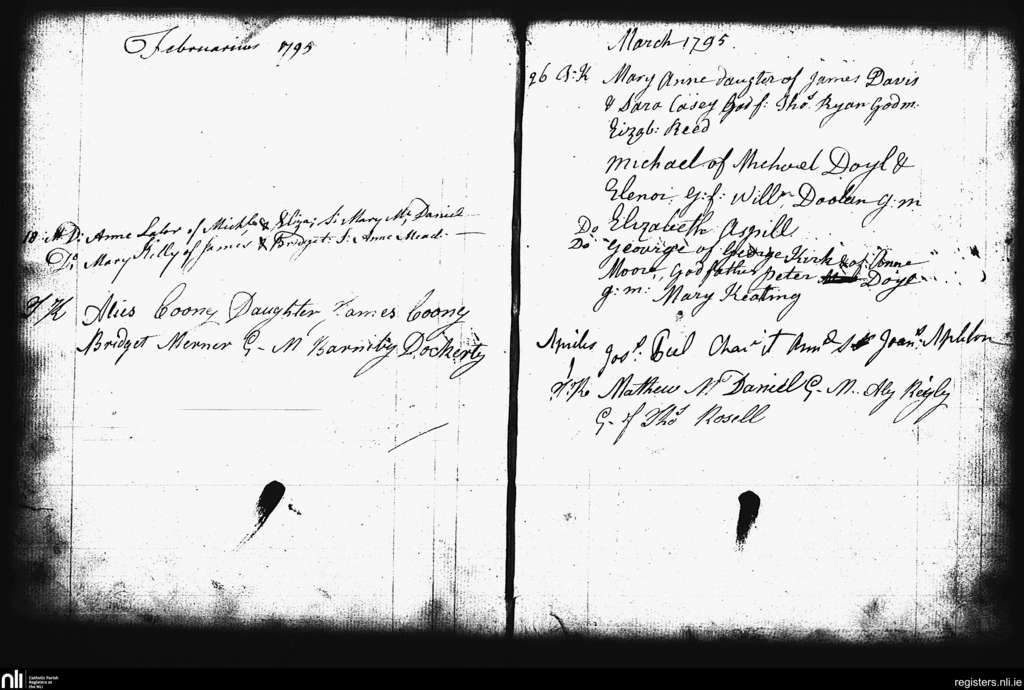 Februarius 1795
18 M: D: Anne Lalor of Michl & Eliza; S: Mary Mc Daniel
Do Mary Killy of James & Bridget S: Anne Mead
T/K Alies Coony Daughter James Coony
Bridget Merner G - M Barniby Dockerty
March 1795
26 B: K Mary Anne daugter of James Davis
& Sara Casey Godf: Thos Ryan Godm.
Eizab: Reed
Michael of Michael Doyl &
Elenor G: f: Willm Doolen g: m
Do Elizabeth Aspill
Do George of George Kirk & of Anne
Moore, Godfather Peter Doyle
g: m: Mary Keating
Aprilis
1 Josp: Peel Joan: Apleton
T: K Mathew Mc Daniel G - M. Aly Reyly
G - f Thos Rosell
nli
Catholic Parish
Registers at
the NLI
registers.nli.ie